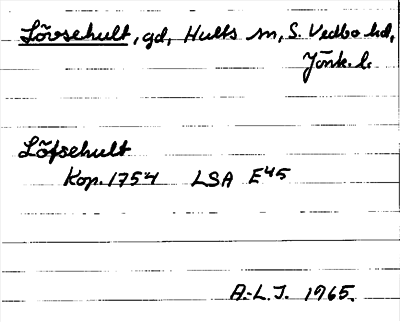 Lövsehult, gd, Hults sn, S. Vedbo hd,
Jönk. l.
Löfsehult
Kop. 1754 LSA E45
A.-L.J. 1965.